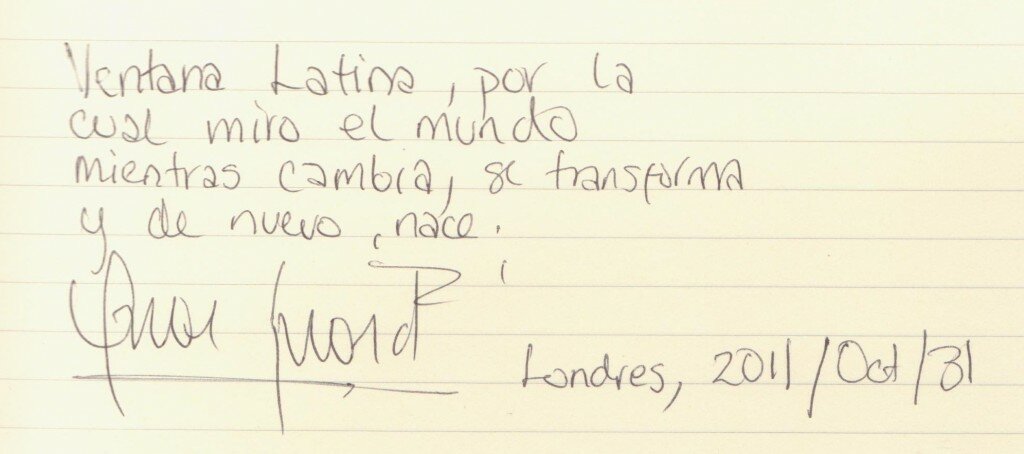 Ventana Latina, por la
cual miro el mundo
mientras cambia, se transforma
y de nuevo, nace.
Londres, 2011/Oct/31